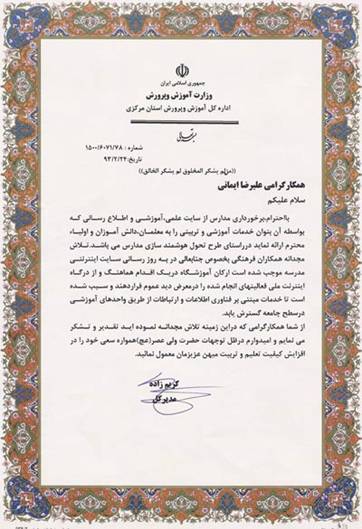 جمهوری اسلامی ایران
وزارت آموزش وپرورش
اداره کل آموزش وپرورش استان مرکزی
شماره : ۱۵۰۰/۶۰۷۱/۷۸
تاریخ: ۹۳/۲/۲۴
((من لم یشکر المخلوق لم یشکر الخالق))
همکارگرامی علیرضا ایمانی
سلام علیکم
بااحترام،برخورداری مدارس از سایت علمی،آموزشی و اطلاع رسانی که
بواسطه آن بتوان خدمات آموزشی و تربیتی را به معلمـان،دانش آمـوزان و اولیـاء
محترم ارائه نماید درراستای طرح تحول هوشمند سازی مدارس می باشد.تلاش
مجدانه همکاران فرهنگی بخصوص جنابعالی در به روز رسانی سایت اینترنتی
مدرسه موجب شده است ارکان آموزشگاه دریک اقدام هماهنگ و از درگاه
اینترنت ملی فعالیتهای انجام شده را درمعرض دید عموم قراردهند و سبب شده
است تا خدمات مبتنی بر فناوری اطلاعات و ارتباطات از طریق واحدهای آموزشی
درسطح جامعه گسترش یابد.
از شما همکارگرامی که دراین زمینه تلاش مجدانه نموده اید تقدیر و تشکر
می نمایم و امیدوارم درظل توجهات حضرت ولی عصر(عج)همواره سعی خود را در
افزایش کیفیت تعلیم و تربیت میهن عزیزمان معمول نمائید.
کریم زاده
مدیرکل